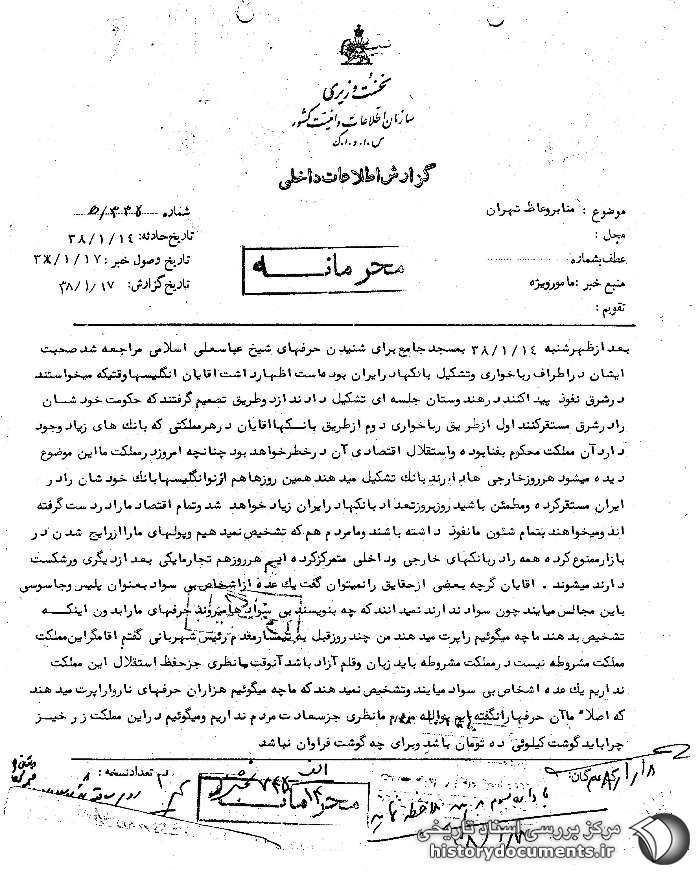 نخست وزیری
سازمان اطلاعات و امنیت کشور
س.ا.و.ا.ک
گزارش اطلاعات داخلی
موضوع : منابر وعاظ تهران
محل :
عطف بشماره
منبع خبر : مامور ویژه
تقویم :
شماره
تاریخ حادثه: ۳۸/۱/۱۴
تاریخ وصول خبر : ۳۸/۱/۱۷
تاریخ گزارش: ۳۸/۱/۱۷
محرمانه
بعد از ظهر شنبه ۳۸/۱/۱۴ بمسجد جامع برای شنیدن حرفهای شیخ عباسعلی اسلامی مراجعه شد صحبت
ایشان در اطراف رباخواری وتشکیل بانکها در ایران بوده است اظهار داشت اقایان انگلیسها وقتیکه میخواستند
در شرق نفوذ پیدا کنند در هندوستان جلسه ای تشکیل دادند از دو طریق تصمیم گرفتند که حکومت خود شان
را در شرق مستقر کنند اول از طریق رباخواری دوم از طریق بانکها اقایان در هر مملکتی که بانک های زیاد وجود
دارد آن مملکت محکوم بفنا بوده واستقلال اقتصادی آن در خطر خواهد بود چنانچه امروز در مملکت ما این موضوع
دیده میشود هر روز خارجی ها بانک تشکیل میدهند همین روزها هم انگلیسها بانک خود شان را در
ایران مستقر کرده و مطمئن باشید روز بروز تعداد بانکها در ایران زیاد خواهد شد وتمام اقتصاد ما را در دست گرفته
اند ومیخواهند بتمام شئون ما نفوذ داشته باشند وما مردم هم که تشخیص نمیدهیم وپولهای ما را از رایج شدن در
بازار ممنوع کرده همه را در بانکهای خارجی وداخلی متمرکز کرده ایم هر روز هم تجار ما یکی بعد از دیگری ورشکست
دارند میشوند . اقایان گرچه بعضی از حقایق را نمیتوان گفت یک عده از اشخاص بی سواد بعنوان پلیس وجاسوسی
باین مجالس میایند چون سواد ندارند نمیدانند که چه بنویسند بی سوادها میروند حرفهای ما را بدون اینکه
تشخیص بدهند ما چه میگوئیم راپرت میدهند من چند روز قبل به تیمسار مقدم رئیس شهربانی گفتم اقا مگر این مملکت
مملکت مشروطه نیست در مملکت مشروطه باید زبان وقلم آزاد باشد آنوقت ما نظری جز حفظ استقلال این مملکت
نداریم یک عده اشخاص بی سواد میایند وتشخیص نمیدهند که ما چه میگوئیم هزاران حرفهای ناروا راپرت میدهند
که اصلا ما آن حرفها را نگفته ایم والله مردم ما نظری جز سعادت مردم نداریم ومیگوئیم در این مملکت زر خیز
چرا باید گوشت کیلوئی ده تومان باشد وبرای چه گوشت فراوان نباشد
تعداد نسخه :
محرمانه
مرکز بررسی اسناد تاریخی
historydocuments.ir